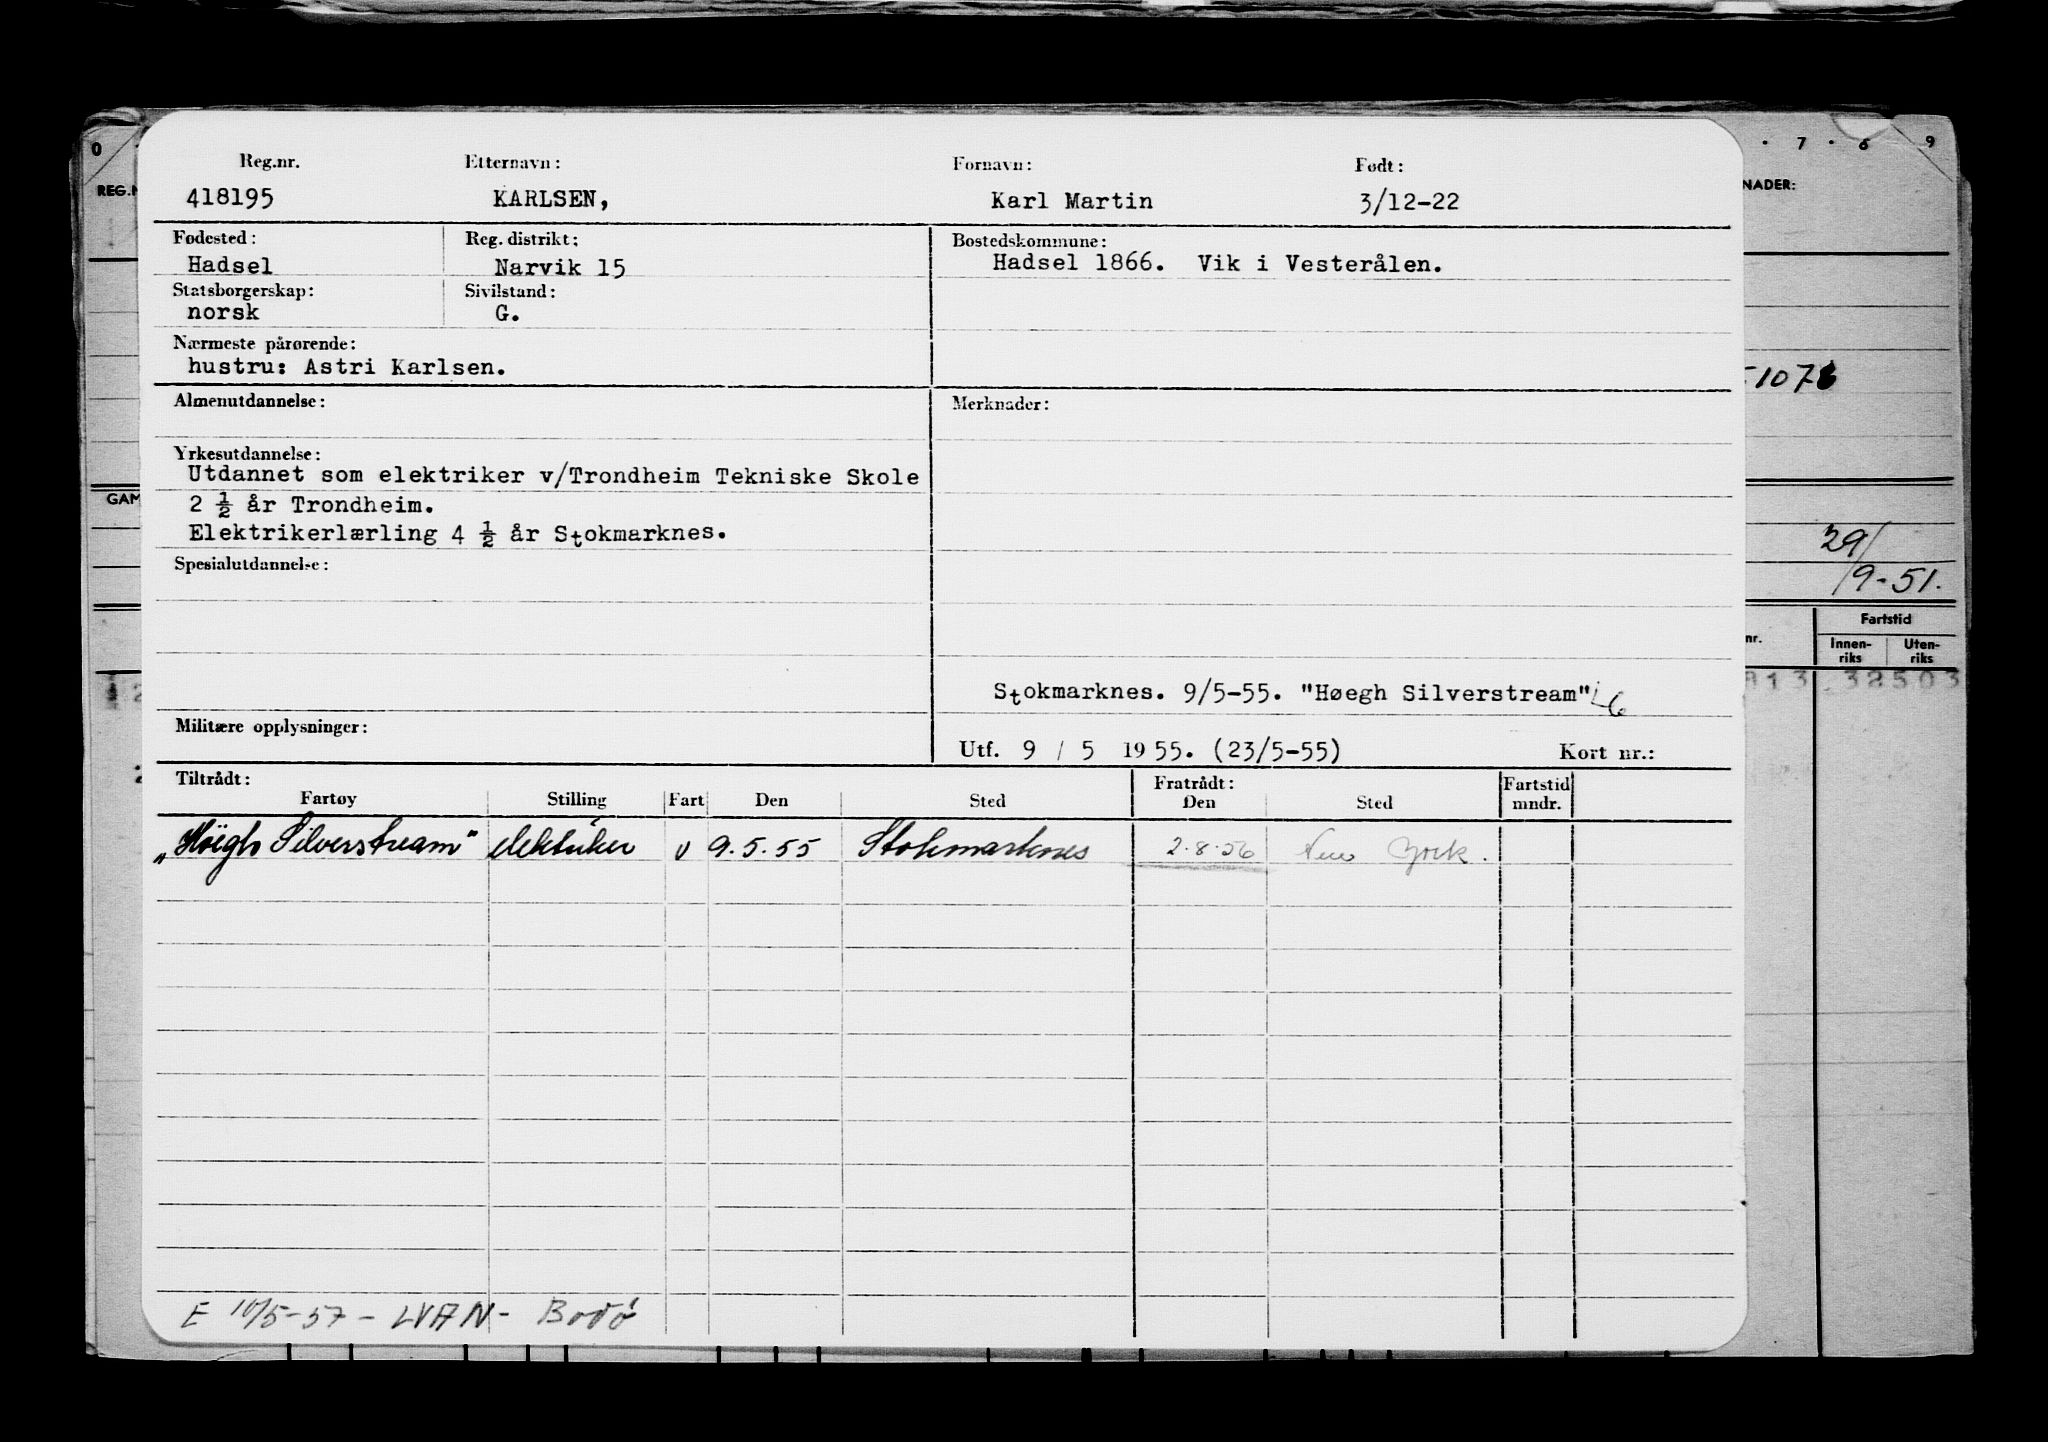 Reg.nr. Etternavn: Fornavn: Født:
418195 KARLSEN, Karl Martin 3/12-22
Fødested: Reg. distrikt: Bostedskommune:
Hadsel Narvik 15 Hadsel 1866. Vik i Vesterålen.
Statsborgerskap: Sivilstand:
norsk G.
Nærmeste pårørende:
hustru: Astri Karlsen.
Almenutdannelse: Merknader:
Yrkesutdannelse:
Utdannet som elektriker v/Trondheim Tekniske Skole
2 ½ år Trondheim.
Elektrikerlærling 4 ½ år Stokmarknes.
Spesialutdannelse:
Stokmarknes. 9/5-55. "Høegh Silverstream"
Militære opplysninger:
Utf. 9 / 5 1955. (23/5-55) Kort nr.:
Tiltrådt: Fratrådt: Fartstid
Fartøy Stilling Fart Den Sted Den Sted mndr.
„Höigh Silverstream" elektriker v 9.5.55 Stokmarknes 2.8.56 New York.
E 10/5-57 - LVAN - Bodø
0 7 8 9
REG.N NADER:
GAM
29/
9-51.
nr. Fartstid
Innen-riks Uten-riks
813 32503